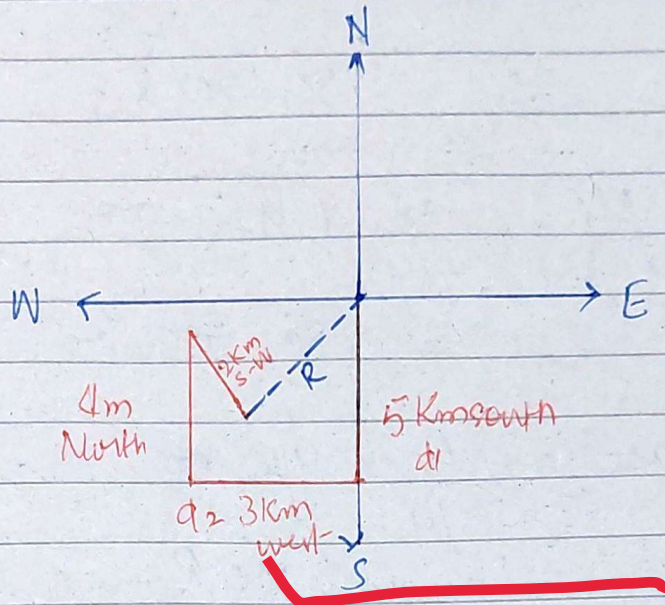 N
W
E
2km
S-W
R
4m
North
5 Kmsouth
d1
d2 3km
west
S